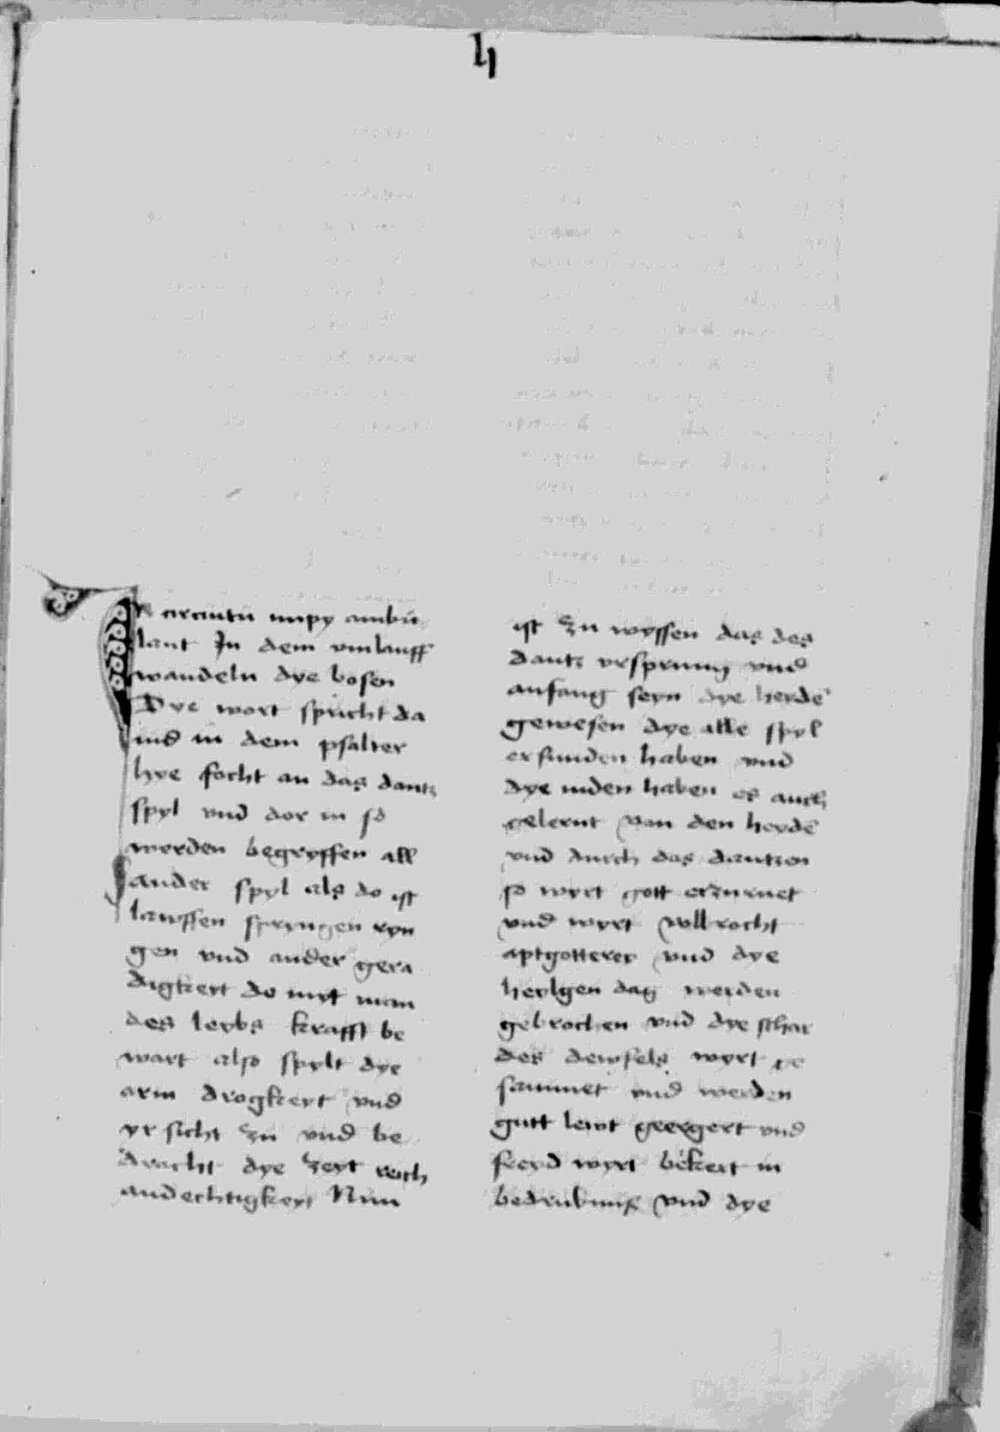 lj
In circuitu impy ambu
lant In dem vmlauff
wandeln dye bosen
Dye wort spricht da
uid in dem psalter
hye focht an das dantz
spyl vnd dor in so
werden begryffen all
ander spyl als do ist
lawffen spryngen ryn
gen vnd ander gera
digkeyt do myt man
des leybs krafft be
wart also spylt dye
arm drogkeyt vnd
yr sicht zu vnd be
dracht dye zeyt
andechtigkeyt Nun
ist zu wyssen das des
dantz vrsprung vnd
anfang seyn dye heyde
gewesen dye alle spyl
erfunden haben vnd
dye iuden haben es auch
gelernt von den heyde
vnd durch das dantzen
so wyrt gott erzurnet
vnd wyrt vollbrocht
aptgotterey vnd dye
heylgen dag werden
gebrochen vnd dye schar
des dewfels wyrt ge
sammet vnd werden
gutt lewt geergert vnd
freyd wyrt bekert in
bedrubnuss vnd dye